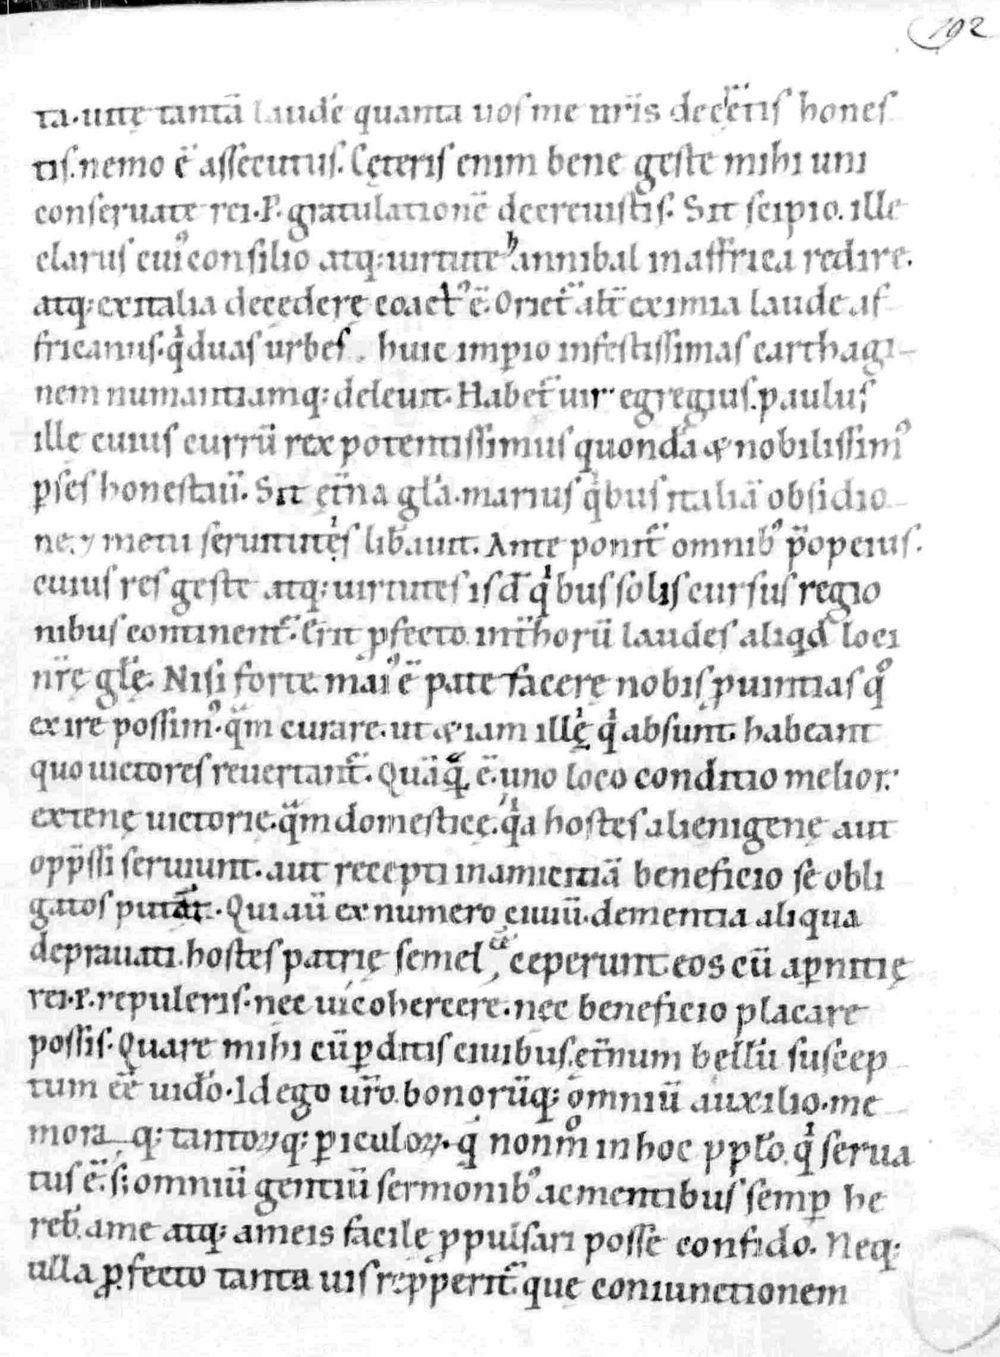 192
ta. uitę tantā laudē quanta uos me nr̄is decr̄etis hones
tis. nemo ē assecutus. Cęteris enim bene geste mihi uni
conseruate rei. P. gratulationē decreuistis. Sit scipio. ille
clarus cui᷒ consilio atq; uirtute hannibal in affrica redire.
atq; ex italia decedere coact᷒ ē. Ornet᷑ alt᷑ eximia laude af
fricanus. qͥ duas urbes huic imꝑio infestissimas carthagi-
nem numantiamq; deleuit. Habet᷑ uir egregius. paulus
ille cuius currū rex potentissimus quondā & nobilissim᷒
ꝑses honestauit. Sit et̄na gl̄a. marius qͥ bus italiā obsidio
ne. ⁊ metu seruitutis lib̄auit. Ante ponit᷑ omnib᷒ pōpeius.
cuius res geste atq; uirtutes isđ qͥbus solis cursus regio
nibus continent᷑. Erit ꝓfecto. int᷑ horū laudes aliqͥd loci
nr̄ę gl̄ę. Nisi forte. mai᷒ ē pate facere nobis ꝓuintias qͦ
ex ire possim᷒. qͣm curare. ut & iam illę qͥ absunt. habeant
quo uictores reuertant᷑. Quāqͣ ē. uno loco conditio melior.
externę uictorię. qͣm domesticę. qͥa hostes alienigenę aut
opp̄ssi seruiunt. aut recepti in amicitiā beneficio se obli
gatos putant. Qui aū ex numero ciuiū. dementia aliqua
deprauati. hostes patrię semel ee ceperunt. eos cū a ꝑnitię
rei. P. repuleris. nec ui cohercere. nec beneficio placare
possis. Quare mihi cū ꝑditis ciuibus. et̄num bellū suscep
tum eē uid̄o. Id ego ur̄o. bonorūq; omniū auxilio. me
mora q; tantoꝝq; ꝑiculoꝝ. q̄ non m̊ in hoc ppl̄o. qͥ serua
tus ē. s; omniū gentiū sermonib᷒ ac mentibus semꝑ he
reb̄. a me atq; a meis facile ꝓpulsari posse confido. Neq;
ulla ꝓfecto tanta uis reꝑperit᷑. que coniunctionem